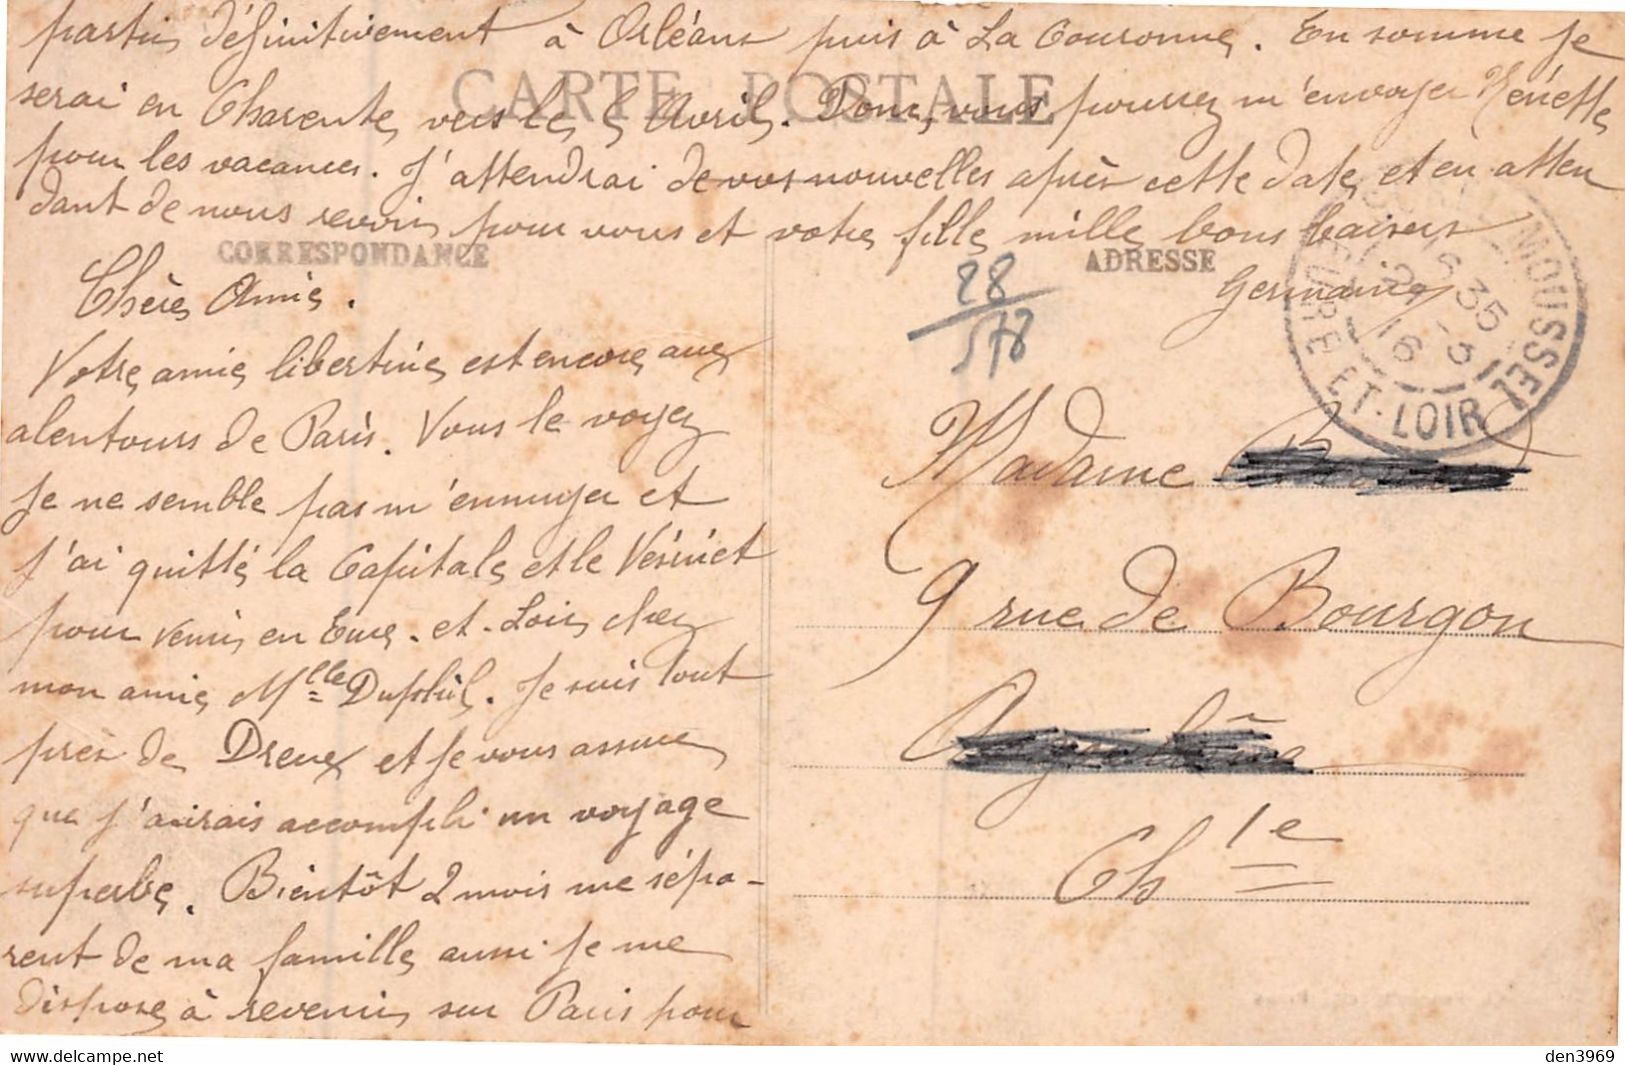 partir définitivement à Orléans puis à La Couronne. En somme je
serai en Charente vers le 5 Avril. Donc, vous pourrez m'envoyer Renée
pour les vacances. J'attendrai de vos nouvelles après cette date, et en atten
dant de nous revoir, pour vous et votre fille, mille bons baisers
Germaine
CARTE POSTALE
CORRESPONDANCE
Chère Amie.
Votre amie libertine est encore aux
alentours de Paris. Vous le voyez
je ne semble pas m'ennuyer et
j'ai quitté la Capitale et le Vésinet
pour venir en Eure-et-Loir chez
mon amie Mlle. Je suis tout
près de Dreux et je vous assure
que j'aurais accompli un voyage
superbe. Bientôt 2 mois me sépa-
rent de ma famille aussi je me
dispose à revenir sur Paris pour
ADRESSE
28
578
16 35
2 - 3
16
MOUSSEL
EURE-ET-LOIR
Madame
9 rue de Bourgon
Chte
delcampe.net
den3969